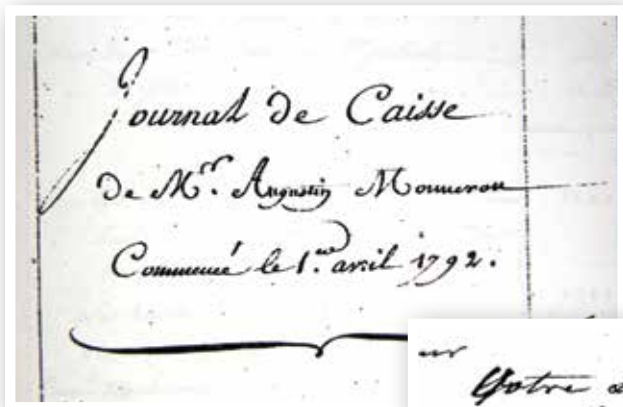 Journal de Caisse
De Mrs. Augustin Monneron
Commencé le 1.er avril 1792.
Votre